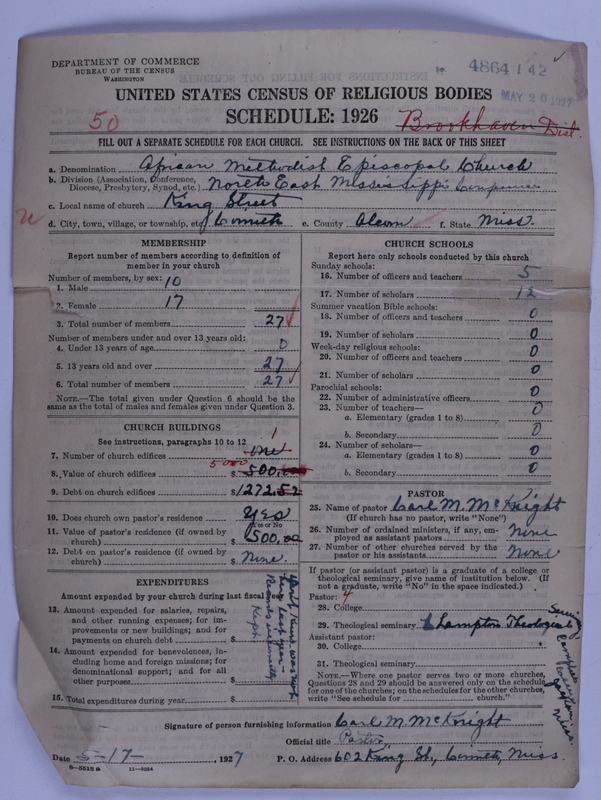 DEPARTMENT OF COMMERCE
BUREAU OF THE CENSUS
WASHINGTON
4864 142
MAY 20 1927
UNITED STATES CENSUS OF RELIGIOUS BODIES
SCHEDULE: 1926
50
Brookhaven Dist.
FILL OUT A SEPARATE SCHEDULE FOR EACH CHURCH. SEE INSTRUCTIONS ON THE BACK OF THIS SHEET
a. Denomination African Methodist Episcopal Church
b. Division (Association, Conference, Diocese, Presbytery, Synod, etc.) North East Mississippi
c. Local name of church King Street
d. City, town, village, or township, etc. Corinth e. County Alcorn f. State Miss.
MEMBERSHIP
Report number of members according to definition of
member in your church
Number of members, by sex:
1. Male 10
2. Female 17
3. Total number of members 27
Number of members under and over 13 years old:
4. Under 13 years of age 0
5. 13 years old and over 27
6. Total number of members 27
NOTE.—The total given under Question 6 should be the
same as the total of males and females given under Question 3.
CHURCH BUILDINGS
See instructions, paragraphs 10 to 12
7. Number of church edifices one 1
8. Value of church edifices $ 500.00 5000
9. Debt on church edifices $ 1272.52
10. Does church own pastor's residence yes
Yes or No
11. Value of pastor's residence (if owned by
church) $ 1500.00
12. Debt on pastor's residence (if owned by
church) $ None.
EXPENDITURES
Amount expended by your church during last fiscal year
13. Amount expended for salaries, repairs,
and other running expenses; for im-
provements or new buildings; and for
payments on church debt $
14. Amount expended for benevolences, in-
cluding home and foreign missions; for
denominational support; and for all
other purposes $
15. Total expenditures during year $
Don't Know was not
here last year
Records
Kept.
CHURCH SCHOOLS
Report here only schools conducted by this church
Sunday schools:
16. Number of officers and teachers 5
17. Number of scholars 12
Summer vacation Bible schools:
18. Number of officers and teachers 0
19. Number of scholars 0
Week-day religious schools:
20. Number of officers and teachers 0
21. Number of scholars 0
Parochial schools:
22. Number of administrative officers 0
23. Number of teachers—
a. Elementary (grades 1 to 8) 0
b. Secondary 0
24. Number of scholars—
a. Elementary (grades 1 to 8) 0
b. Secondary 0
PASTOR
25. Name of pastor Carl M. McKnight
(If church has no pastor, write "None")
26. Number of ordained ministers, if any, em-
ployed as assistant pastors None
27. Number of other churches served by the
pastor or his assistants None
If pastor (or assistant pastor) is a graduate of a college or
theological seminary, give name of institution below. (If
not a graduate, write "No" in the space indicated.)
Pastor: 4
28. College
29. Theological seminary Lampton Theological Seminary
Campbell College Jackson Miss.
Assistant pastor:
30. College
31. Theological seminary
NOTE.—Where one pastor serves two or more churches,
Questions 28 and 29 should be answered only on the schedule
for one of the churches; on the schedules for the other churches,
write "See schedule for church."
Signature of person furnishing information Carl M. McKnight
Official title Pastor
Date 5-17-, 1927 P. O. Address 602 King St., Corinth, Miss.
8—5518 a 11—9264